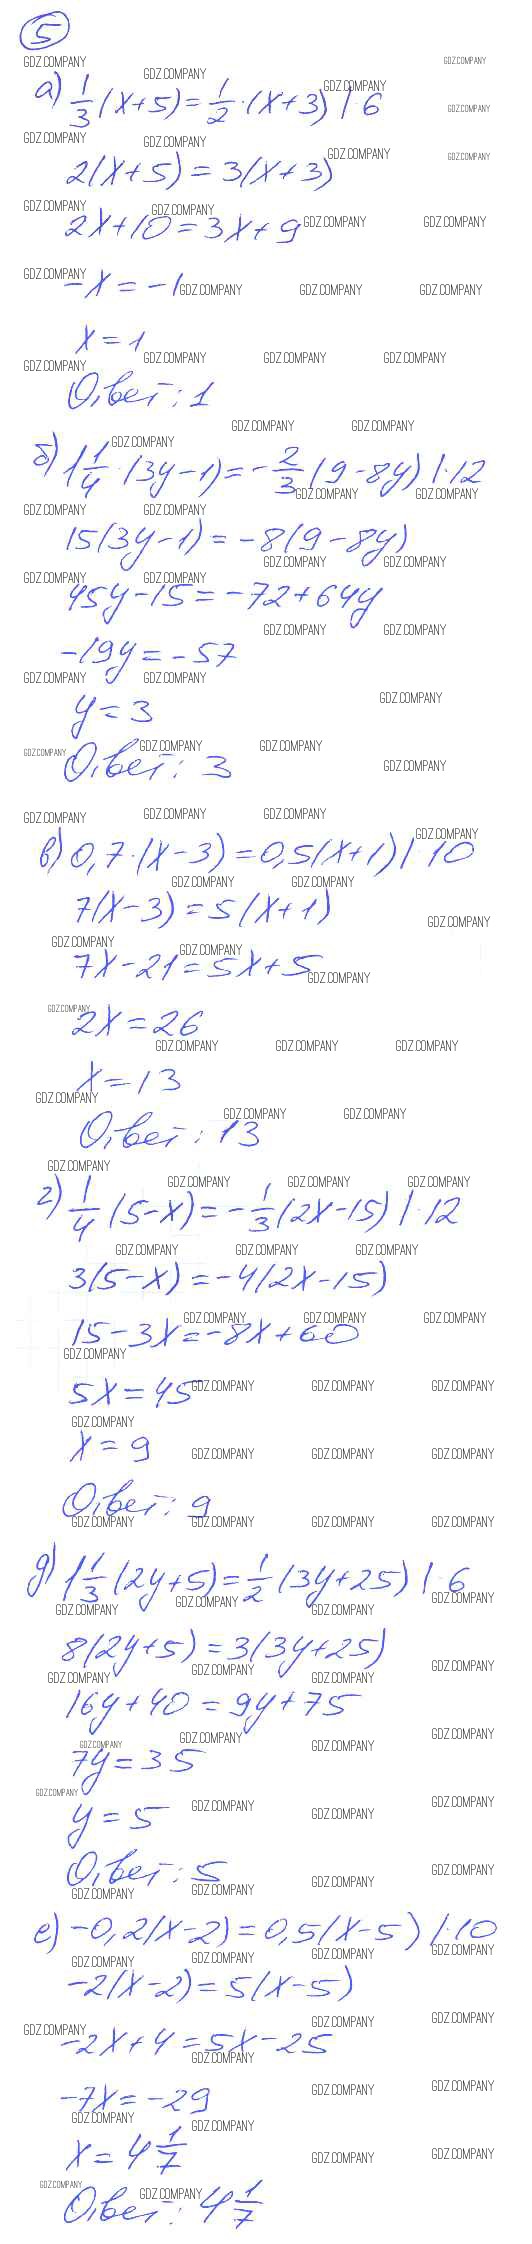 5
а) 1/3 (x+5) = 1/2 · (x+3) | · 6
2(x+5) = 3(x+3)
2x+10 = 3x+9
-x = -1
x = 1
Ответ: 1
б) 1 1/4 · (3y-1) = -2/3 (9-8y) | · 12
15(3y-1) = -8(9-8y)
45y-15 = -72+64y
-19y = -57
y = 3
Ответ: 3
в) 0,7·(x-3) = 0,5(x+1) | · 10
7(x-3) = 5(x+1)
7x-21 = 5x+5
2x = 26
x = 13
Ответ: 13
г) 1/4 (5-x) = -1/3 (2x-15) | · 12
3(5-x) = -4(2x-15)
15-3x = -8x+60
5x = 45
x = 9
Ответ: 9
д) 1 1/3 (2y+5) = 1/2 (3y+25) | · 6
8(2y+5) = 3(3y+25)
16y+40 = 9y+75
7y = 35
y = 5
Ответ: 5
е) -0,2(x-2) = 0,5(x-5) | · 10
-2(x-2) = 5(x-5)
-2x+4 = 5x-25
-7x = -29
x = 4 1/7
Ответ: 4 1/7
GDZ.COMPANY